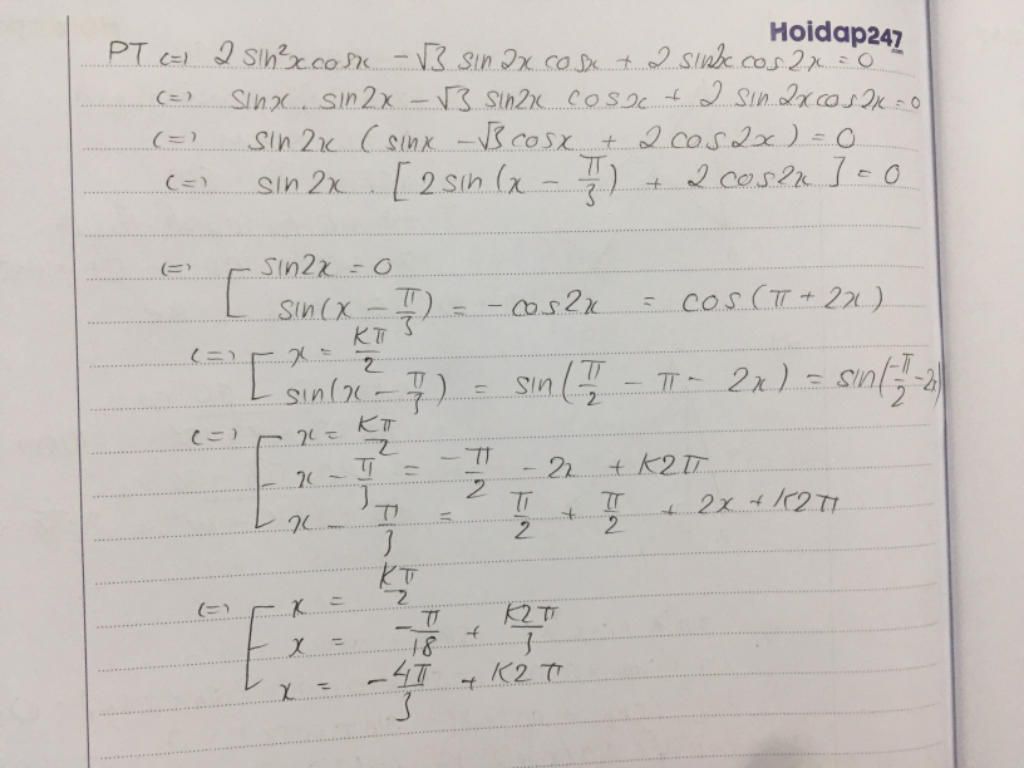 Hoidap247
PT <=> 2 sin²x cosx - √3 sin 2x cosx + 2 sin2x cos 2x = 0
<=> sinx . sin2x - √3 sin2x cosx + 2 sin 2x cos 2x = 0
<=> sin 2x (sinx - √3 cosx + 2 cos 2x) = 0
<=> sin 2x . [2 sin (x - π/3) + 2 cos2x] = 0
<=> [ sin2x = 0
sin(x - π/3) = - cos2x = cos(π + 2x)
<=> [ x = Kπ/2
sin(x - π/3) = sin(π/2 - π - 2x) = sin(-π/2 - 2x)
<=> [ x = Kπ/2
x - π/3 = -π/2 - 2x + K2π
x - π/3 = π/2 + π/2 + 2x + K2π
<=> [ x = Kπ/2
x = -π/18 + K2π/3
x = -4π/3 + K2π